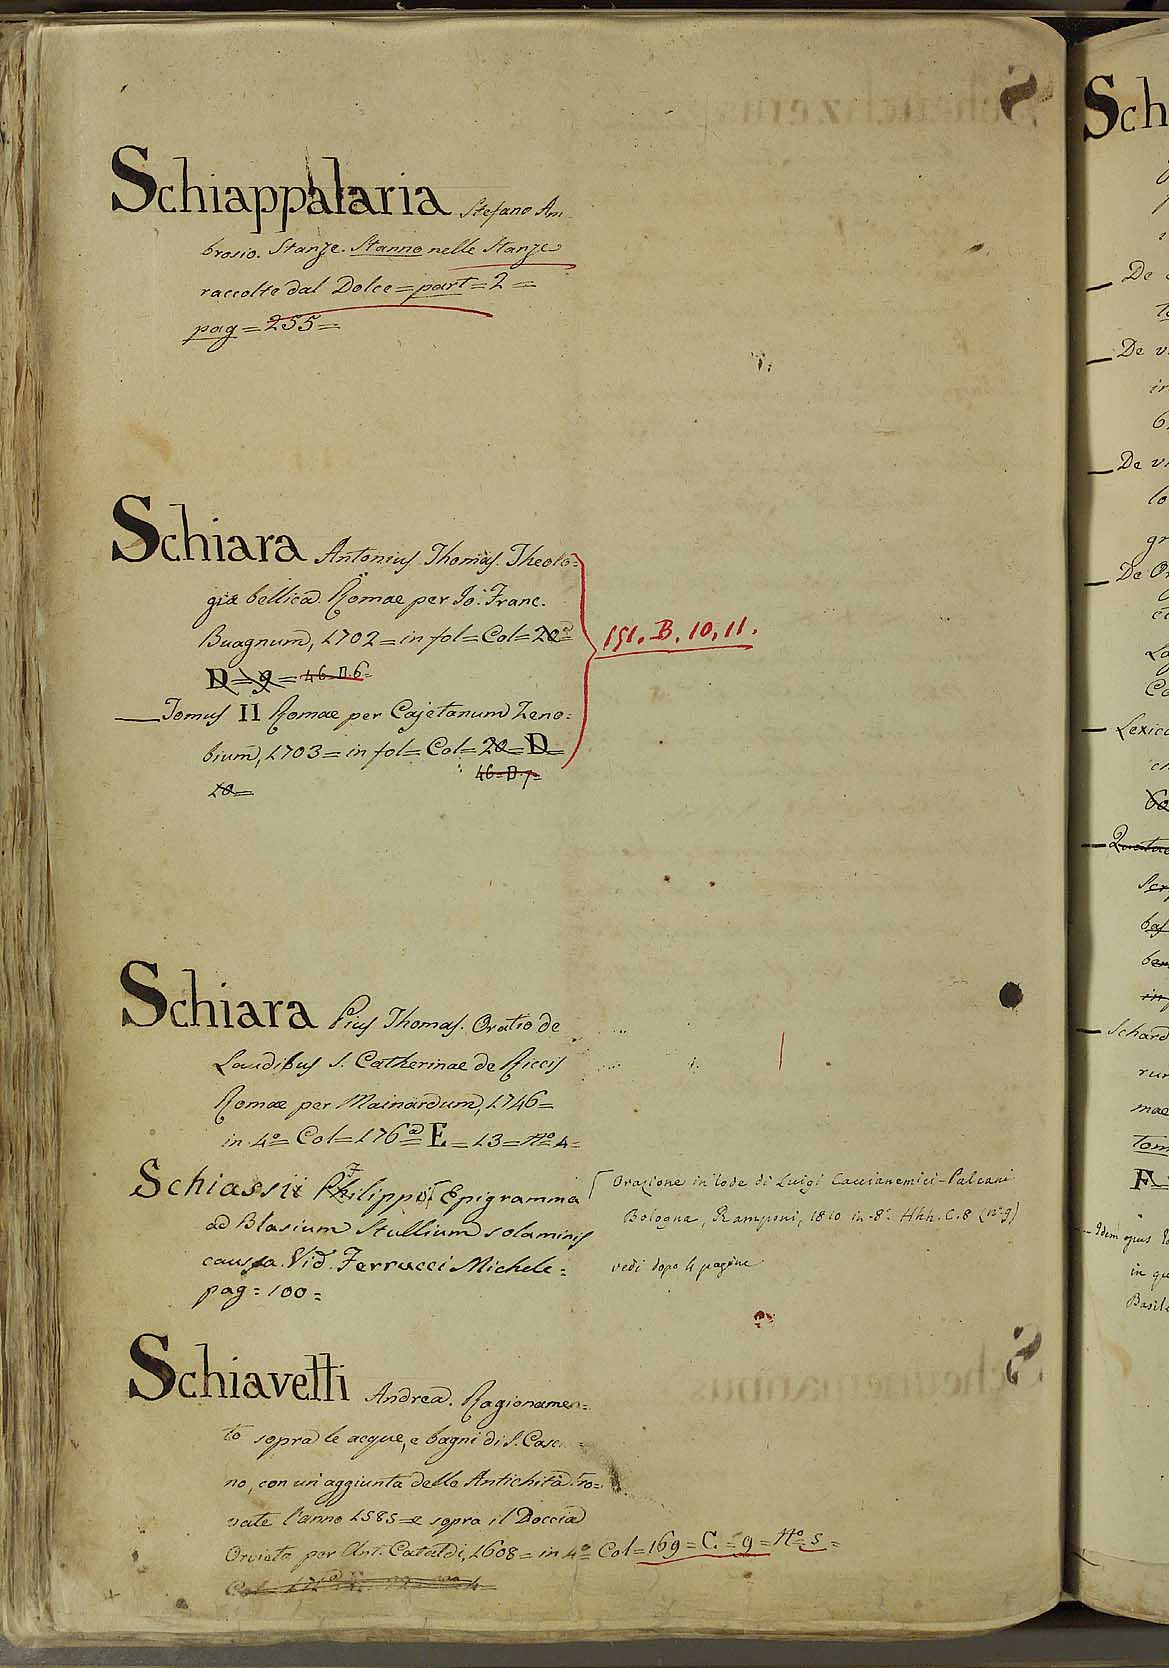 Schiappalaria Stefano Am-
brosio. Stanze. Stanno nelle Stanze
raccolte dal Dolce = part = 2 =
pag = 255 =
Schiara Antonius Thomas. Theolo=
gia bellica. Romae per Jo: Franc.
Buagnum, 1702 = in fol = Col = 20ª=
D = 9 = 46. D. 6 =
151. B. 10, 11.
— Tomus II Romae per Cajetanum Zeno=
bium, 1703 = in fol = Col = 20 = D =
46 = D. 7 =
10 =
Schiara Pius Thomas. Oratio de
Laudibus S. Catherinae de Riccis
Romae per Mainardum, 1746 =
in 4º = Col = 176ª = E = 13 = Nº 4 =
Schiassi Philippi Epigramma
ad Blasium Stullium solaminis
caussa. Vid. Ferrucci Michele =
pag = 100 =
Orazione in lode di Luigi Caccianemici-Palcani
Bologna, Ramponi, 1810 in-8º. Hhh. C. 8 (nº 9)
vedi dopo 4 pagine
Schiavetti Andrea. Ragionamen=
to sopra le acque, e bagni di S. Casc
no, con un'aggiunta delle Antichità tro=
vate l'anno 1585 = e sopra il Doccia
Orvieto per Ant. Cataldi, 1608 = in 4º = Col = 169 = C. = 9 = Nº 5 =
Col
Sch
De
De v
De v
lo
gr
De Or
Lexico
Schard
rum
mae
tom
F
Idem opus
in qu
Basil